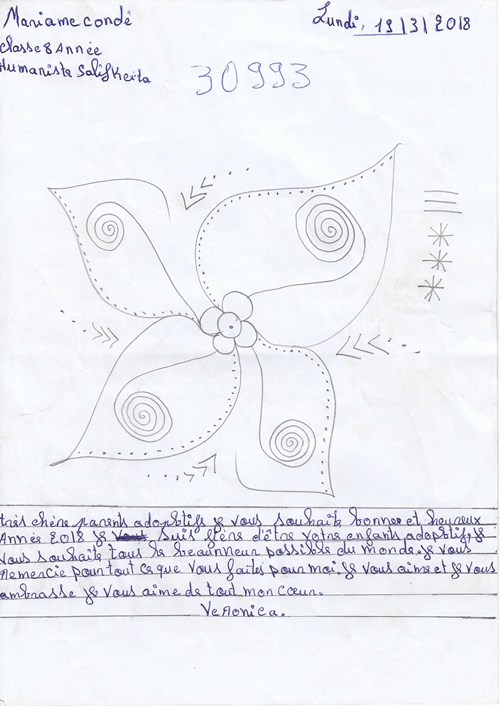 Mariame condé
Lundi, 19/3/2018
classe 8 Année
Humaniste Salif Keita
30993
très chère parents adoptifs je vous souhaite bonne et heureux
Année 2018 je suis fière d'être votre enfants adoptif, je
vous souhaite tous le beaunneur possible du monde. je vous
remercie pour tout ce que vous faites pour moi. je vous aime et je vous
ambrasse je vous aime de tout mon cœur.
Veronica.